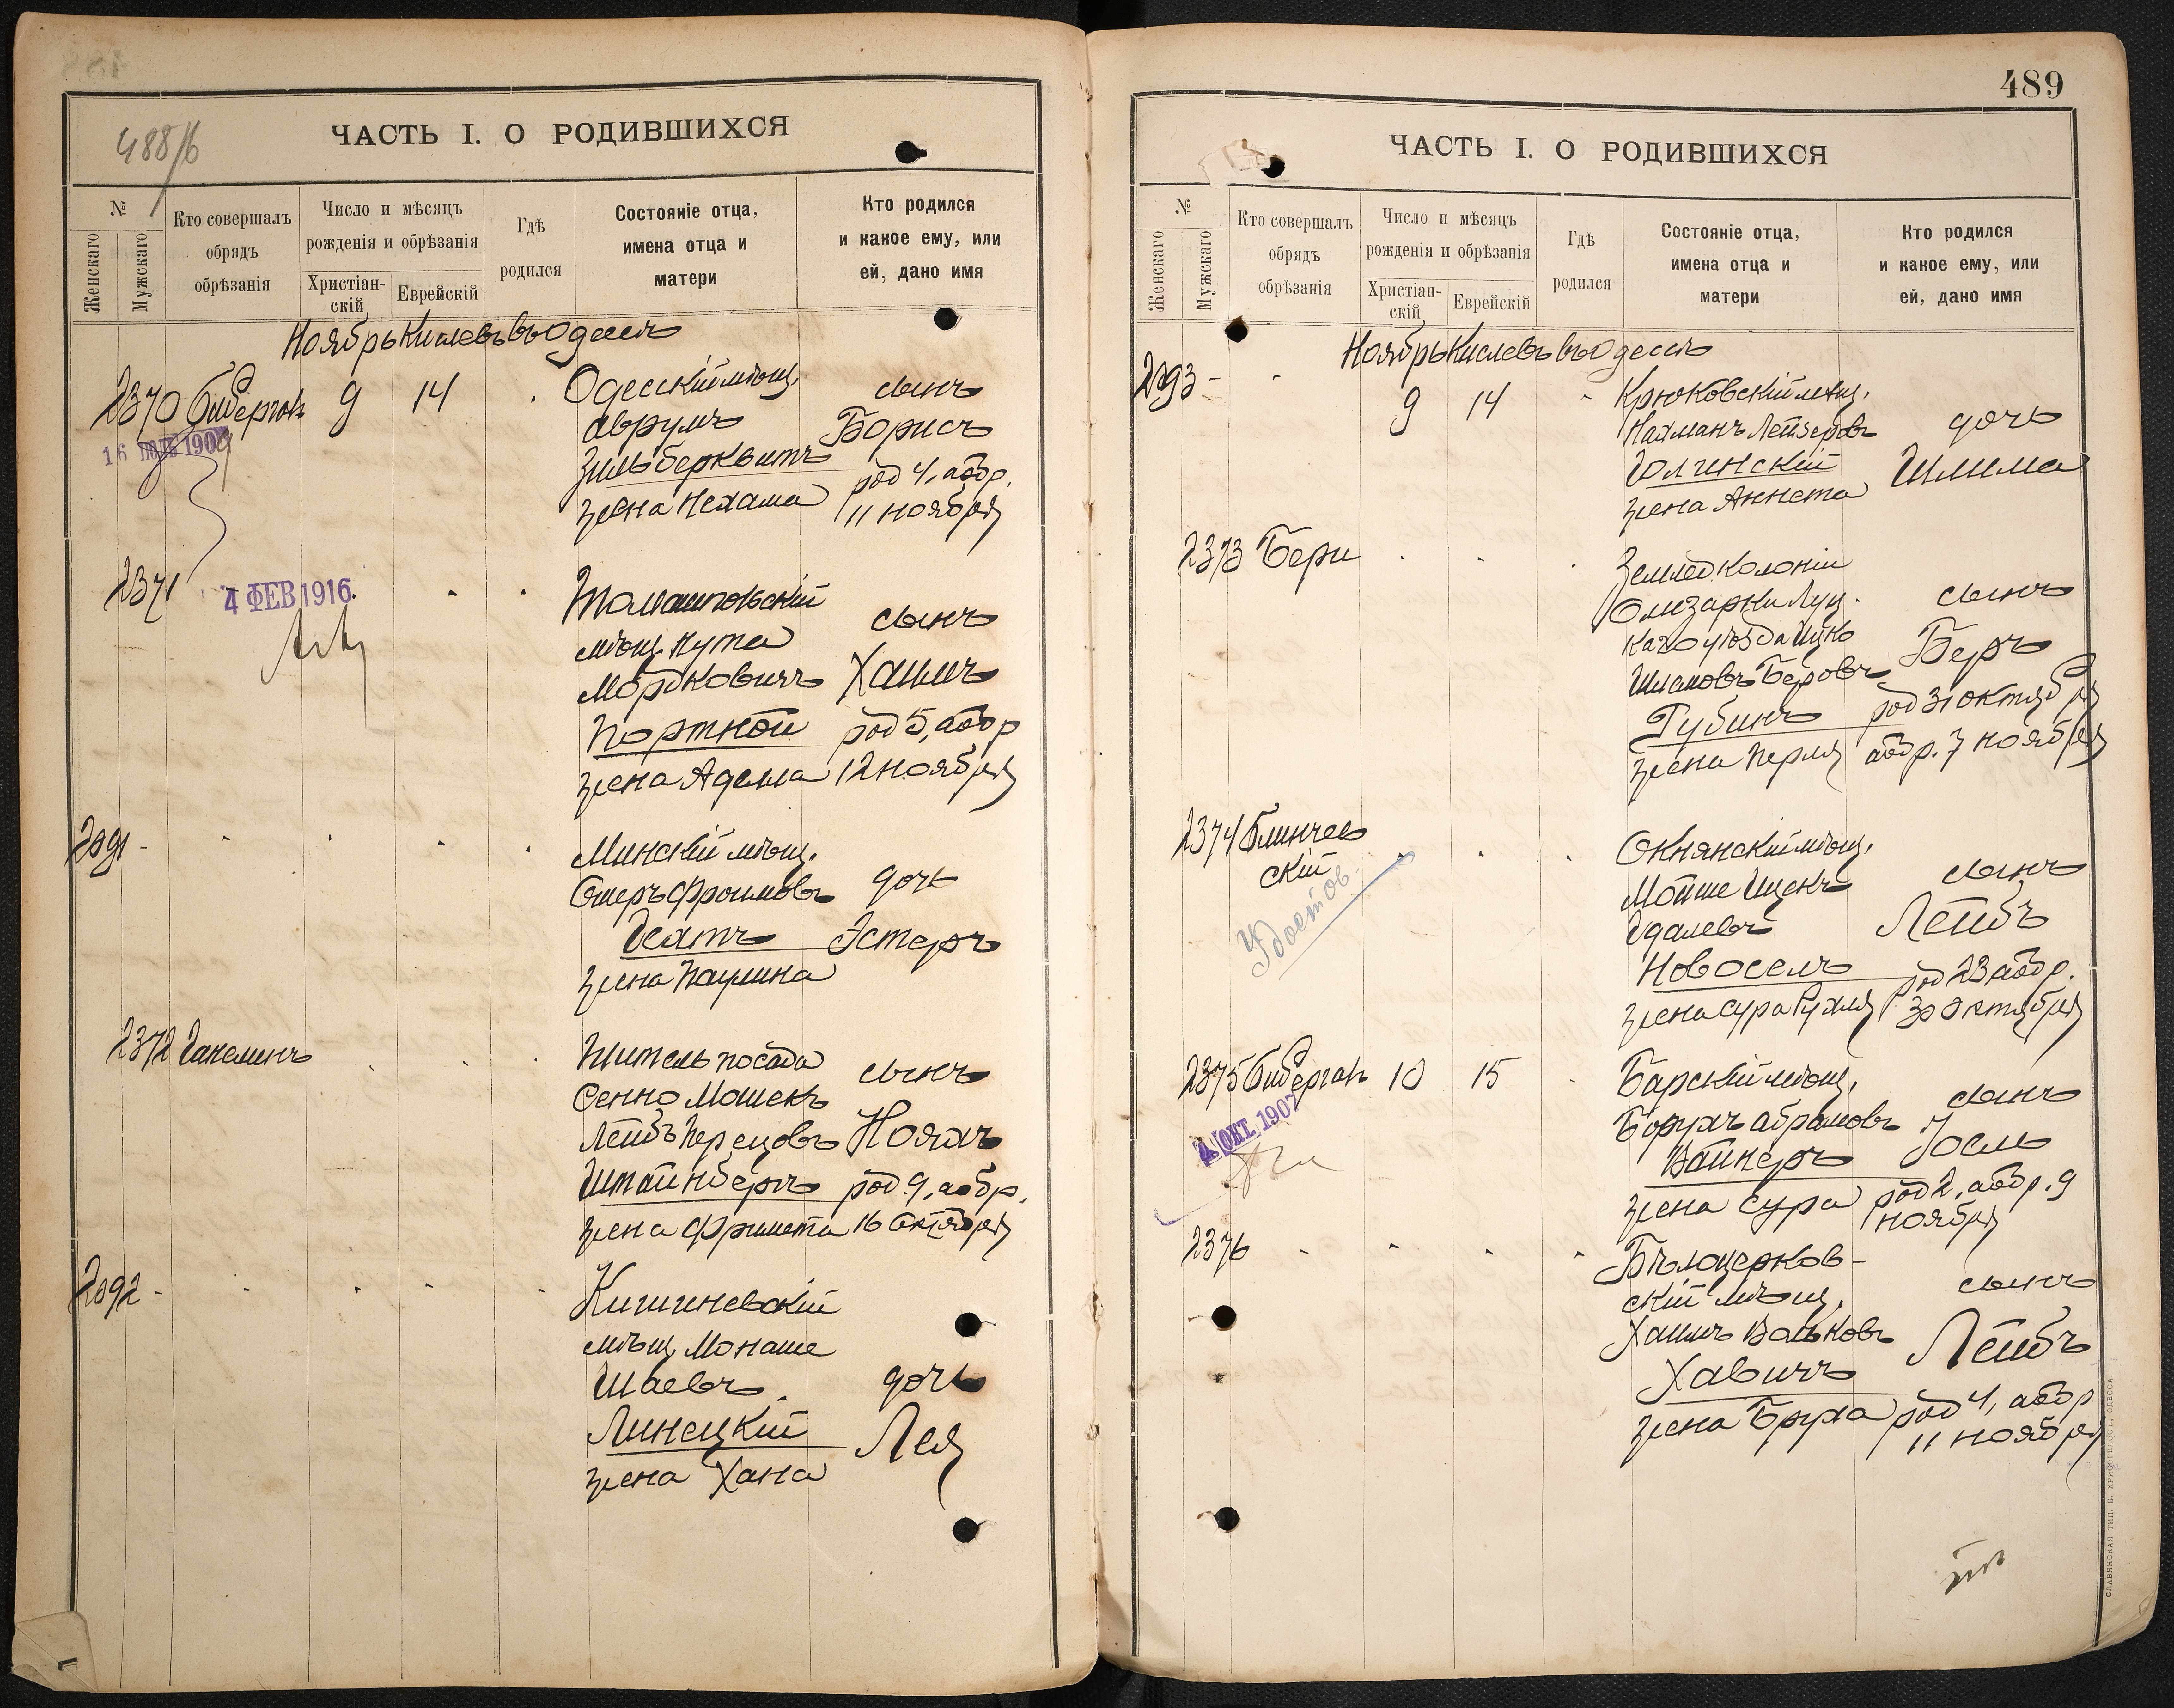 488/б
ЧАСТЬ I. О РОДИВШИХСЯ
№
Женскаго
Мужскаго
Кто совершалъ
обрядъ
обрѣзанія
Число и мѣсяцъ
рожденія и обрѣзанія
Христіан-
скій
Еврейскій
Гдѣ
родился
Состояніе отца,
имена отца и
матери
Кто родился
и какое ему, или
ей, дано имя
Ноябрь Кислевъ въ Одессѣ
2370 Бидерман 9 14
16 1909
Одесскій мѣщ.
Аврумъ
Зильберквитъ
жена Нехама
сынъ
Борисъ
род 4, аобр.
11 ноября
2371
4 ФЕВ 1916.
Томашпольскій
мѣщ. Нута
Мордковичъ
Портной
жена Аделла
сынъ
Хаимъ
род 5, аобр
12 ноября
2091 -
Минскій мѣщ.
Ошеръ Фроимовъ
жена Паулина
дочь
Эстеръ
2372 Ганелинъ
Житель посада
Сенно Мошекъ
Лейбъ Перецовъ
Штайнбергъ
жена Фримета
сынъ
Ноахъ
род. 9, аобр.
16 Октября
2092 -
Кишиневскій
мѣщ. Монаше
Шаевъ
Линецкій
жена Хана
дочь
Лея
489
ЧАСТЬ I. О РОДИВШИХСЯ
№
Женскаго
Мужскаго
Кто совершалъ
обрядъ
обрѣзанія
Число и мѣсяцъ
рожденія и обрѣзанія
Христіан-
скій
Еврейскій
Гдѣ
родился
Состояніе отца,
имена отца и
матери
Кто родился
и какое ему, или
ей, дано имя
Ноябрь Кислевъ въ Одессѣ
2093 -
9 14
Крюковскій мѣщ.
Нахманъ Лейзеровъ
Голинскій
жена Аннета
дочь
Шлима
2373 Бери
Землед колоніи
Олизарки Луц.
каго уѣзда Ицко
Шламовъ Беровъ
Рубинъ
жена Перля
сынъ
Беръ
род 31 октября
аобр. 7 ноября
2374 Блинчев
скій
Удостов.
Окнянскій мѣщ.
Мойше Иценъ
Удалевъ
Новоселъ
жена Сура Рухля
сынъ
Лейбъ
род 23 аобр.
30 Октября
2375 Бидерман 10 15
4 ОКТ. 1907
Барскій мѣщ.
Борухъ Абрамовъ
Вайнеръ
жена Сура
сынъ
Іосль
род 2, аобр. 9
ноября
2376
Бѣлоцерков-
скій мѣщ.
Хаимъ Вольковъ
Хавичъ
жена Бруха
сынъ
Лейбъ
род 4, аобр
11 ноября
СЛАВЯНСКАЯ ТИП. Е. ХРИСОГЕЛОСЪ, ОДЕССА.